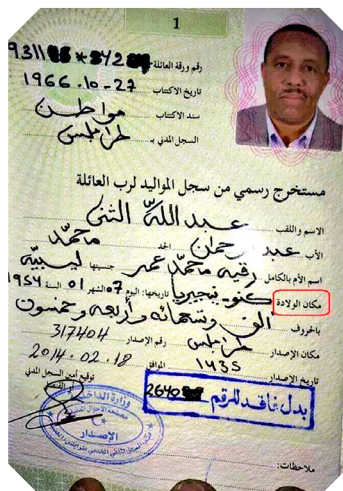 1
رقم ورقة العائلة 9311
تاريخ الاكتتاب 27-10-1966
سند الاكتتاب مواطن
السجل المدني بـ طرابلس
مستخرج رسمي من سجل المواليد لرب العائلة
الاسم واللقب عبد الله الثني
الأب عبد الرحمن الجد محمد
اسم الأم بالكامل رقيه محمد عمر جنسيتها ليبية
مكان الولادة كنو - نيجيريا تاريخها: اليوم 07 الشهر 01 السنة 1954
بالحروف الف وتسعمائة وأربعة وخمسون
مكان الإصدار طرابلس رقم الإصدار 317404
تاريخ الإصدار 1435 الموافق 2014.02.18
توقيع أمين السجل المدني
بدل فاقد للرقم
وزارة الداخلية
مصلحة الأحوال المدنية
الإصدار
ملاحظات: